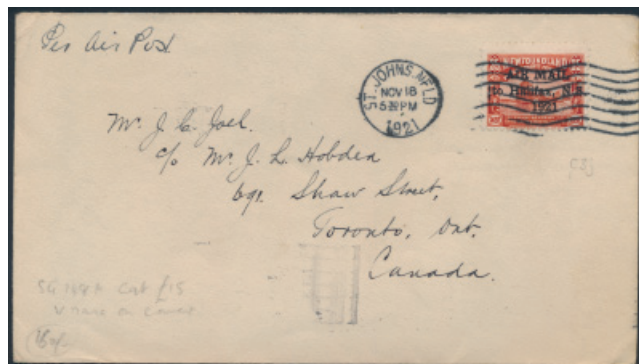 Per Air Post
ST. JOHNS, NFLD
NOV 18
5 PM
1921
AIR MAIL
to Halifax, N.S.
1921
Mr. J. C. Joel.
c/o Mr. J. L. Hobden
Shaw Street,
Toronto, Ont.
Canada.
Cat £15
on cover